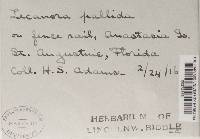 Lecanora pallida
on fence rail, Anastasia Is.
St. Augustine, Florida
Coll. H. S. Adams. 2/24/16
HERBARIUM OF
LINCOLN W. RIDDLE